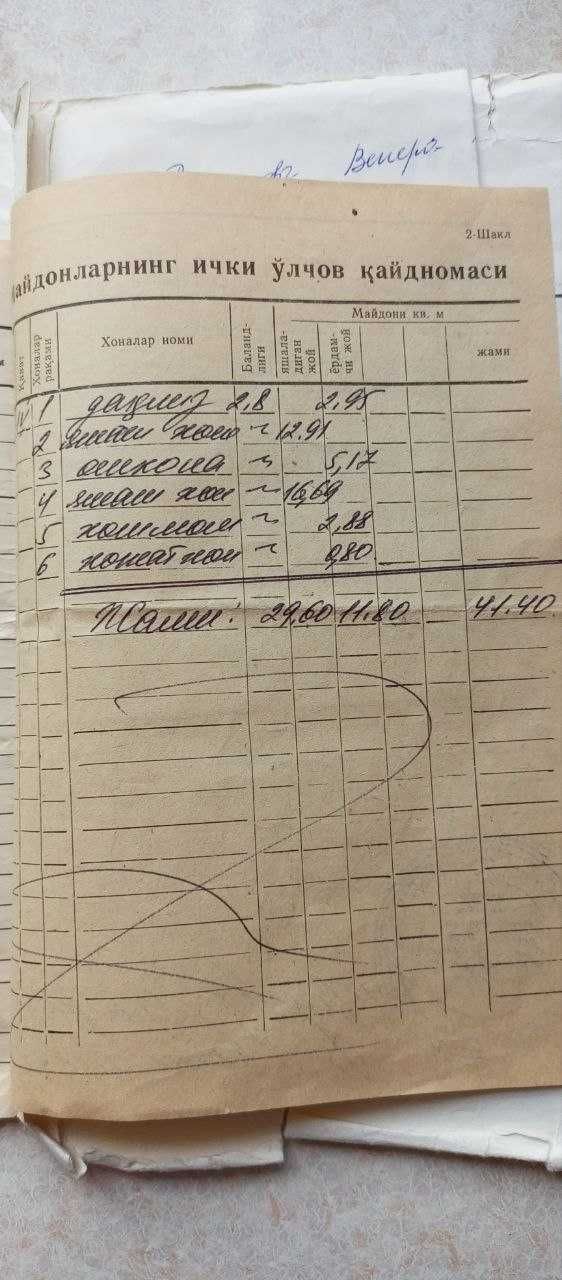 Венера
2-Шакл
Майдонларнинг ички ўлчов қайдномаси
Қават
Хоналар рақами
Хоналар номи
Баландлиги
Майдони кв. м
яшаладиган жой
ёрдамчи жой
жами
IV 1 даҳлиз 2,8 2,95
2 яшаш хона ~ 12.91
3 ошхона ~ 5,17
4 яшаш хон ~ 16,69
5 хоммом ~ 2,88
6 хожатхон ~ 0,80
Жами: 29,60 11.80 41.40